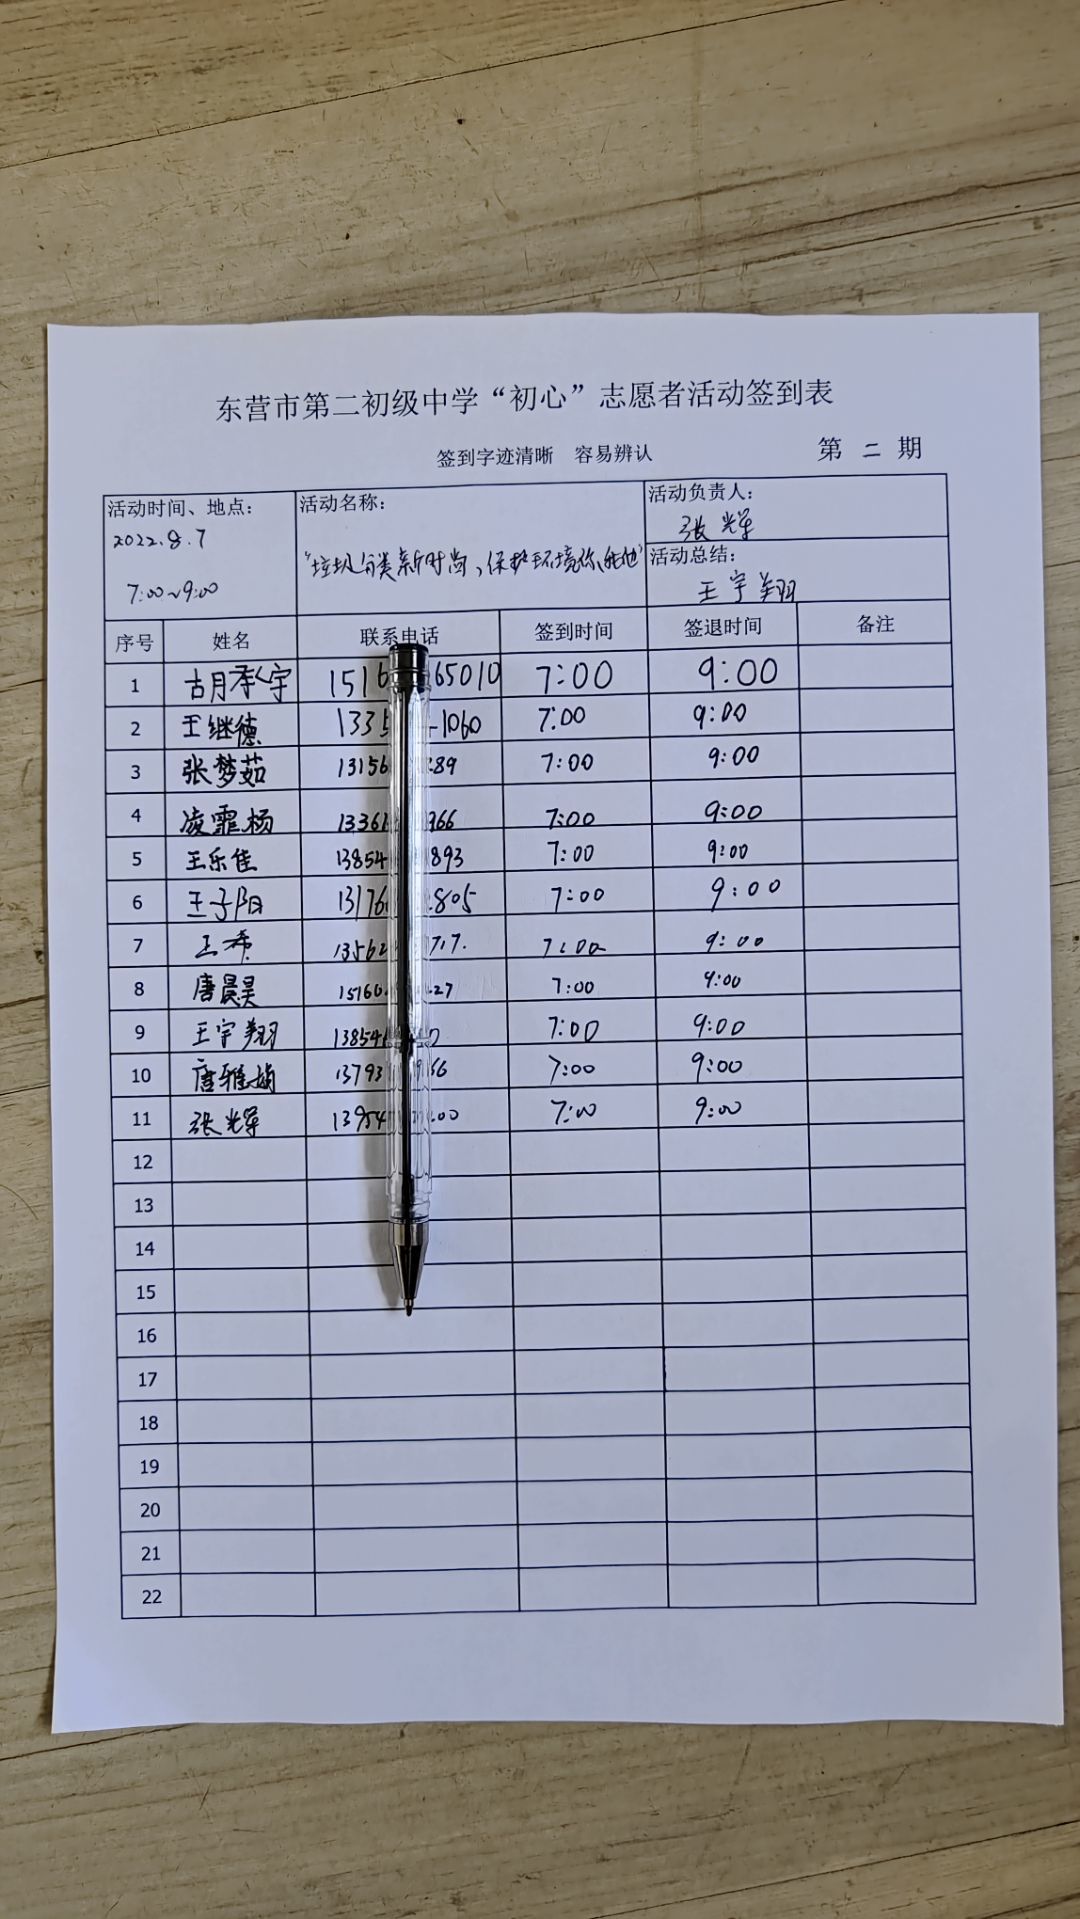 东营市第二初级中学“初心”志愿者活动签到表
签到字迹清晰 容易辨认 第 二 期
活动时间、地点: 活动名称: 活动负责人:
2022.8.7 张辉
"垃圾分类新时尚,保护环境你、我、他" 活动总结:
7:00~9:00 王宇翔
序号 姓名 联系电话 签到时间 签退时间 备注
1 胡承宇 1516 65010 7:00 9:00
2 王继德 133 1060 7:00 9:00
3 张梦茹 13156 89 7:00 9:00
4 凌霏杨 1336 966 7:00 9:00
5 王乐佳 13854 893 7:00 9:00
6 王子阳 13176 805 7:00 9:00
7 王希 13562 717. 7:00 9:00
8 唐晨昊 15160 27 7:00 9:00
9 王宇翔 13854 0 7:00 9:00
10 唐雅娟 13793 66 7:00 9:00
11 张辉 13954 00 7:00 9:00
12
13
14
15
16
17
18
19
20
21
22